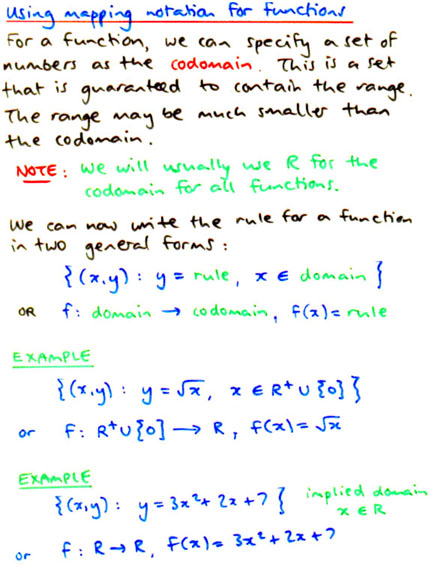 Using mapping notation for functions
For a function, we can specify a set of
numbers as the codomain. This is a set
that is guaranteed to contain the range.
The range may be much smaller than
the codomain.
NOTE: We will usually use R for the
codomain for all functions.
We can now write the rule for a function
in two general forms:
{(x,y): y = rule, x ∈ domain}
OR f: domain → codomain, f(x) = rule
EXAMPLE
{(x,y): y = √x, x ∈ R⁺ ∪ {0}}
or f: R⁺ ∪ {0} → R, f(x) = √x
EXAMPLE
{(x,y): y = 3x² + 2x + 7} implied domain
x ∈ R
or f: R → R, f(x) = 3x² + 2x + 7